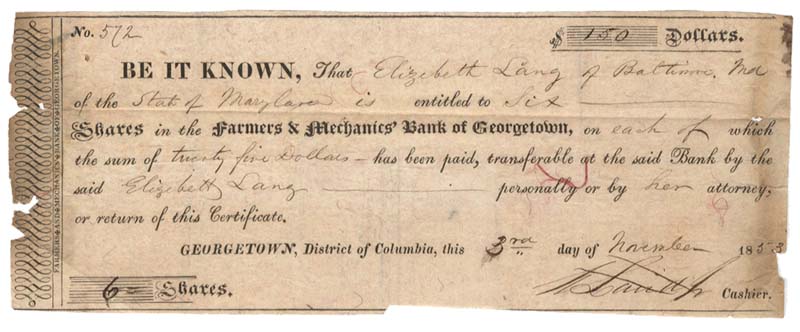 No. 572
$ 150 Dollars.
BE IT KNOWN, That Elizebeth Lang of Baltimore, Md
of the State of Maryland is entitled to Six
Shares in the Farmers & Mechanics' Bank of Georgetown, on each of which
the sum of twenty five Dollars has been paid, transferable at the said Bank by the
said Elizebeth Lang personally or by her attorney,
or return of this Certificate.
GEORGETOWN, District of Columbia, this 3rd day of November 1853
6 Shares.
Cashier.
FARMERS AND MECHANICS BANK OF GEORGETOWN.